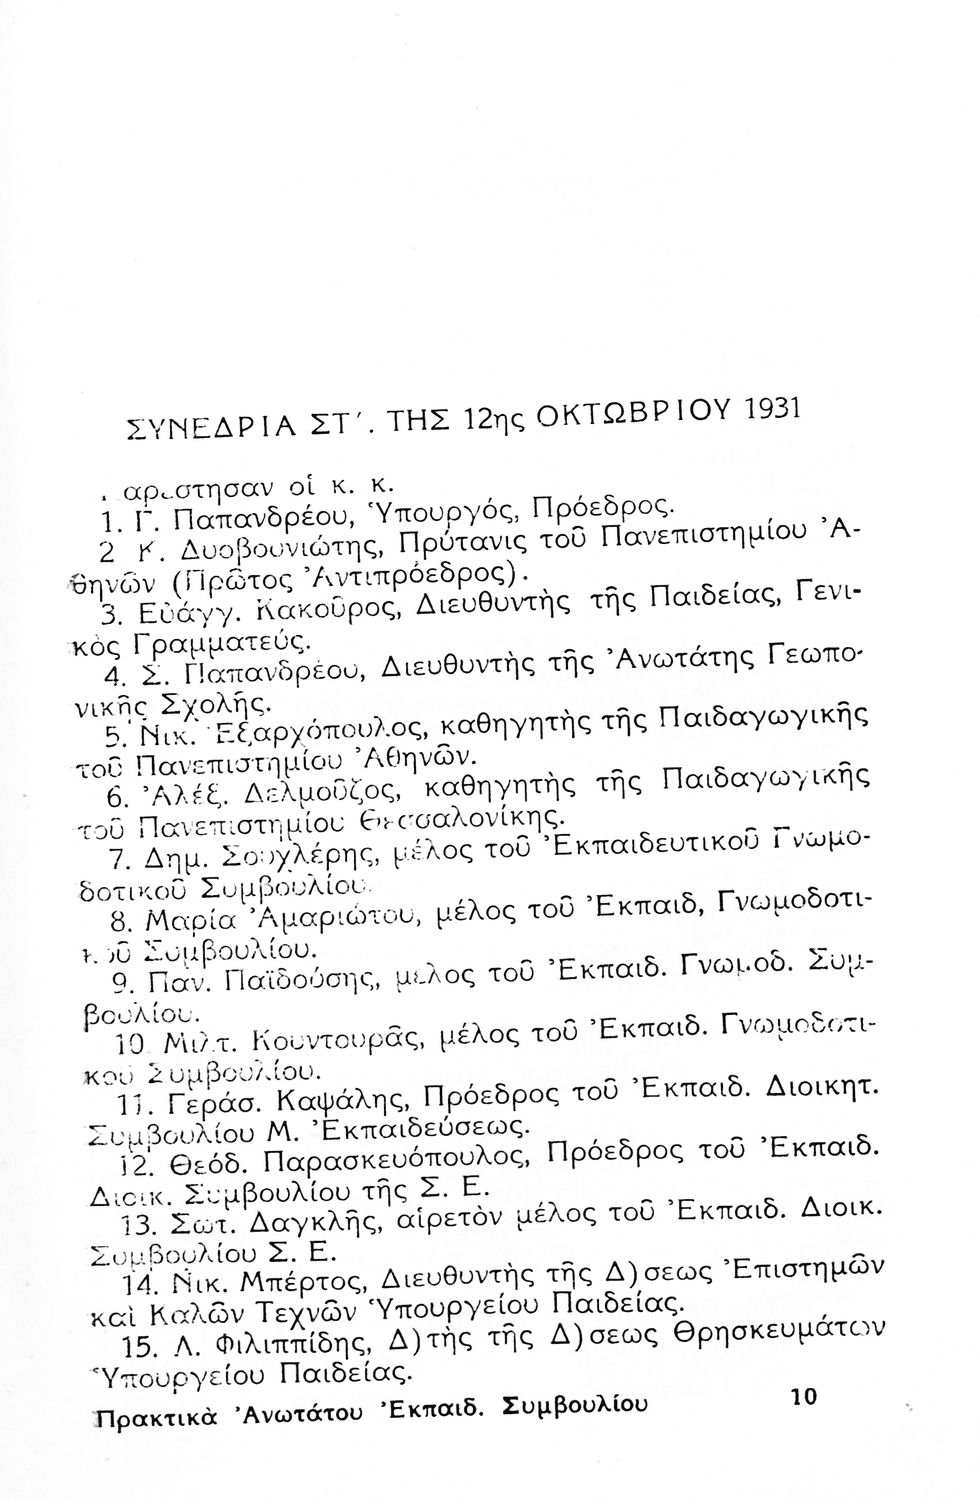 ΣΥΝΕΔΡΙΑ ΣΤ΄. ΤΗΣ 12ης ΟΚΤΩΒΡΙΟΥ 1931
οἱ κ. κ.
1. Γ. Παπανδρέου, Ὑπουργός, Πρόεδρος.
2 Κ. Δυοβουνιώτης, Πρύτανις τοῦ Πανεπιστημίου Ἀ-
θηνῶν (Πρῶτος Ἀντιπρόεδρος).
3. Εὐάγγ. Κακοῦρος, Διευθυντὴς τῆς Παιδείας, Γενι-
κὸς Γραμματεύς.
4. Σ. Παπανδρέου, Διευθυντὴς τῆς Ἀνωτάτης Γεωπο-
νικῆς Σχολῆς.
5. Νικ. Ἐξαρχόπουλος, καθηγητὴς τῆς Παιδαγωγικῆς
τοῦ Πανεπιστημίου Ἀθηνῶν.
6. Ἀλέξ. Δελμοῦζος, καθηγητὴς τῆς Παιδαγωγικῆς
τοῦ Πανεπιστημίου Θεσσαλονίκης.
7. Δημ. Σουχλέρης, μέλος τοῦ Ἐκπαιδευτικοῦ Γνωμο-
δοτικοῦ Συμβουλίου.
8. Μαρία Ἀμαριώτου, μέλος τοῦ Ἐκπαιδ, Γνωμοδοτι-
κοῦ Συμβουλίου.
9. Παν. Παϊδούσης, μέλος τοῦ Ἐκπαιδ. Γνωμοδ. Συμ-
βουλίου.
10 Μιλτ. Κουντουρᾶς, μέλος τοῦ Ἐκπαιδ. Γνωμοδοτι-
κου Συμβουλίου.
11. Γεράσ. Καψάλης, Πρόεδρος τοῦ Ἐκπαιδ. Διοικητ.
Συμβουλίου Μ. Ἐκπαιδεύσεως.
12. Θεόδ. Παρασκευόπουλος, Πρόεδρος τοῦ Ἐκπαιδ.
Διοικ. Συμβουλίου τῆς Σ. Ε.
13. Σωτ. Δαγκλῆς, αἱρετὸν μέλος τοῦ Ἐκπαιδ. Διοικ.
Συμβουλίου Σ. Ε.
14. Νικ. Μπέρτος, Διευθυντὴς τῆς Δ)σεως Ἐπιστημῶν
καὶ Καλῶν Τεχνῶν Ὑπουργείου Παιδείας.
15. Λ. Φιλιππίδης, Δ)τὴς τῆς Δ)σεως Θρησκευμάτων
Ὑπουργείου Παιδείας.
Πρακτικὰ Ἀνωτάτου Ἐκπαιδ. Συμβουλίου 10